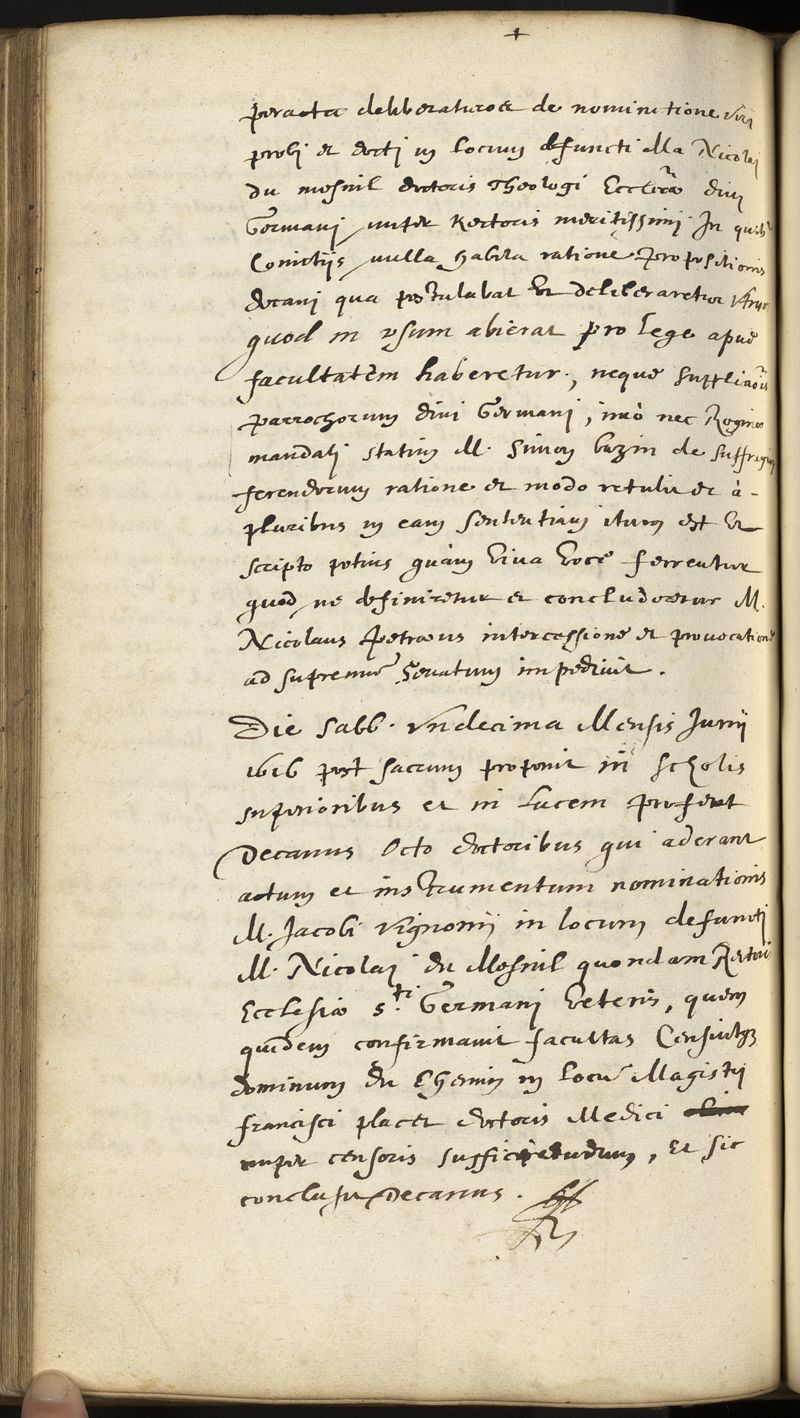 +
peracta deliberatura de nominatione viri
probi et docti in locum defuncti Mri Nicolai
du mesnil doctoris Theologi Ecclesiæ divi
Germani nuper Rectoris meritissimi In quib9
Comitijs nulla habita ratione propositionis
decani qua postulabat ut deliberaretur utrum
quod in usum abierat pro lege apud
facultatem haberetur, neque supplicaõis
parrochorum divi Germani, imò nec Regine
mandati statim M. Simon bazin de suffragiis
ferendorum ratione et modo retulit et à -
pluribus in eam sententiam itum est ut
scripto potius quàm viva voce ferrentur
quod ne definiretur et concluderetur M.
Nicolaus Petræus intercessione et provocatione
ad supremũ Senatum impedivit.
Die Sabb. undecima Mensis Junij
1616 post sacrum proponit in scholis
superioribus et in lucem profert
Decanus Octo doctoribus qui aderant
actum et instrumentum nominationis
M. Jacobi Vignonij in locum defuncti
M. Nicolai du Mesnil quondam Rectoris
Ecclesiæ s.ti Germani veteris, quem
quidem confirmavit facultas Censuitq3
dominum du Chemin in locũ Magistri
francisci placet doctoris Medici
nuper censoris sufficiendum, Et sic
conclusit Decanus.